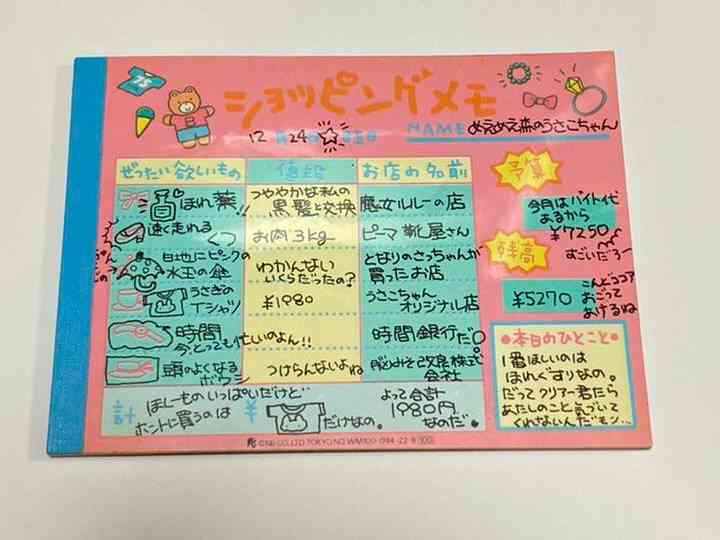 ショッピングメモ
12月24日☆曜日
NAME めえめえ森のうさこちゃん
ぜったい欲しいもの 値段 お店の名前
ほれ薬!! つややかな私の黒髪と交換 魔女ルルーの店
速く走れるくつ お肉3kg ピーマ靴屋さん
白地にピンクの水玉の傘 わかんないいくらだったの? となりのさっちゃんが買ったお店
うさぎのTシャツ ¥1980 うさこちゃんオリジナル店
時間 今、とっても忙しいのよん!! 時間銀行だ。
頭のよくなるボウシ つけらんないよね 改良株式会社
計 ほしーものいっぱいだけどホントに買うのは ¥ だけなの。 よって合計1980円なのだ。
予算
今月はバイト代
あるから
¥7250
すごいだろ〜
残高
¥5270
こんどココア
おごって
あげるね
●本日のひとこと●
1番ほしいのは
ほれぐすりなの。
だってクリアー君たら
あたしのこと気づいて
くれないんだモン…
©NB CO., LTD. TOKYO